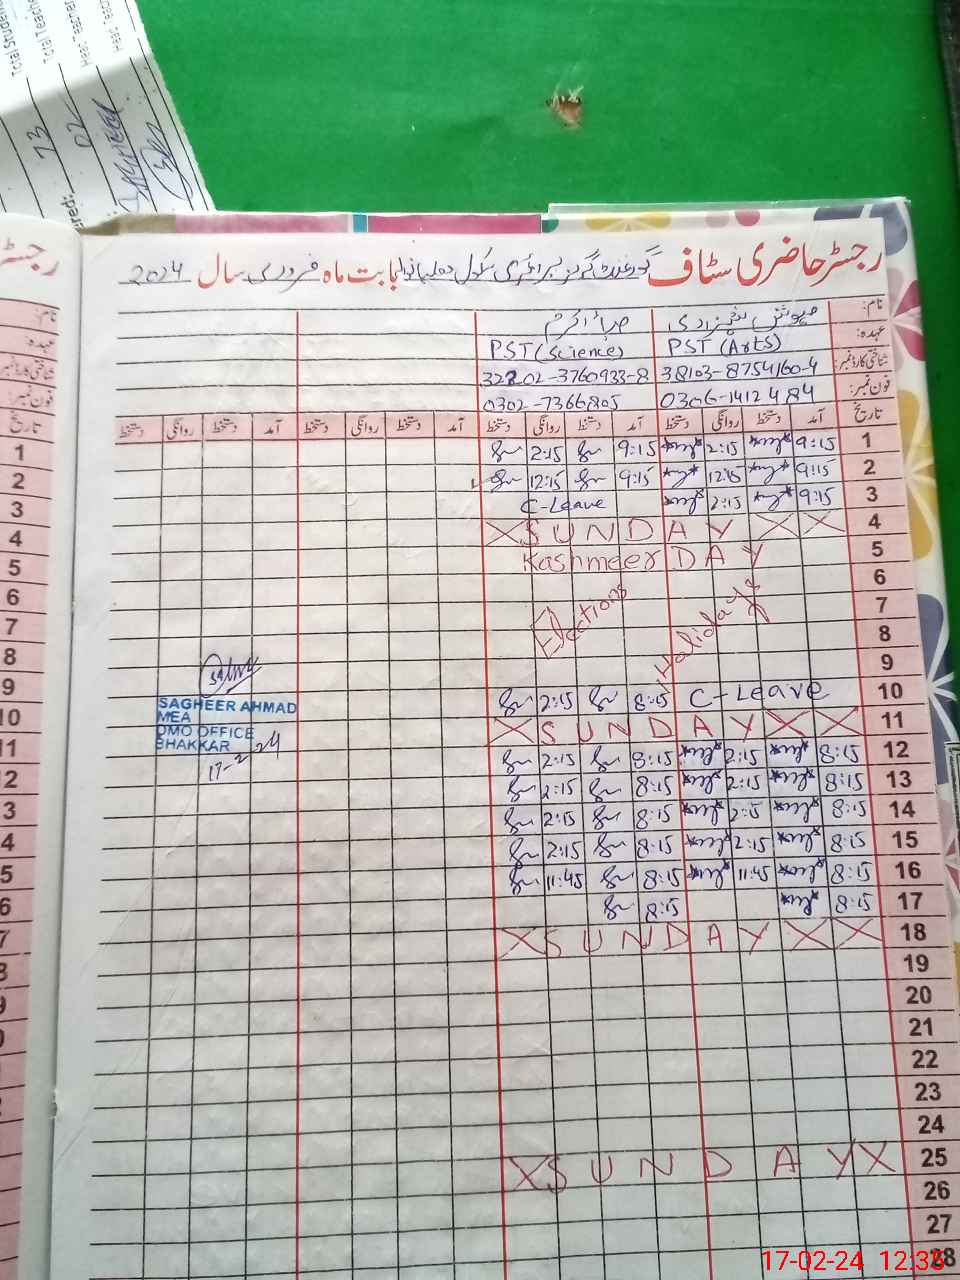 Total Student
Total Teach
Head Teacher
Head Teac
73
02
ered:-
SAGHEER
رجسٹر حاضری سٹاف گورنمنٹ گرلز پرائمری سکول بابت ماہ فروری سال 2024
نام:
عہدہ: PST (Arts) PST (Science)
شناختی کارڈ نمبر: 38103-8754160-4 32202-3760933-8
فون نمبر: 0306-1412484 0302-7366805
تاریخ آمد دستخط روانگی دستخط آمد دستخط روانگی دستخط آمد دستخط روانگی دستخط آمد دستخط روانگی دستخط
2:15 9:15 2:15 9:15 1
12:15 9:15 12:15 9:15 2
C-Leave 2:15 9:15 3
X SUNDAY X X 4
Kashmeer DAY 5
6
Elections Halidays 7
8
9
2:15 8:15 C-Leave 10
X SUNDAY X X 11
2:15 8:15 2:15 8:15 12
2:15 8:15 2:15 8:15 13
2:15 8:15 2:15 8:15 14
2:15 8:15 2:15 8:15 15
11:45 8:15 11:45 8:15 16
8:15 8:15 17
X SUNDAY X X 18
19
20
21
22
23
24
X SUNDAY X 25
26
27
28
SAGHEER AHMAD
MEA
DMO OFFICE
BHAKKAR
17-2-24
17-02-24 12:35